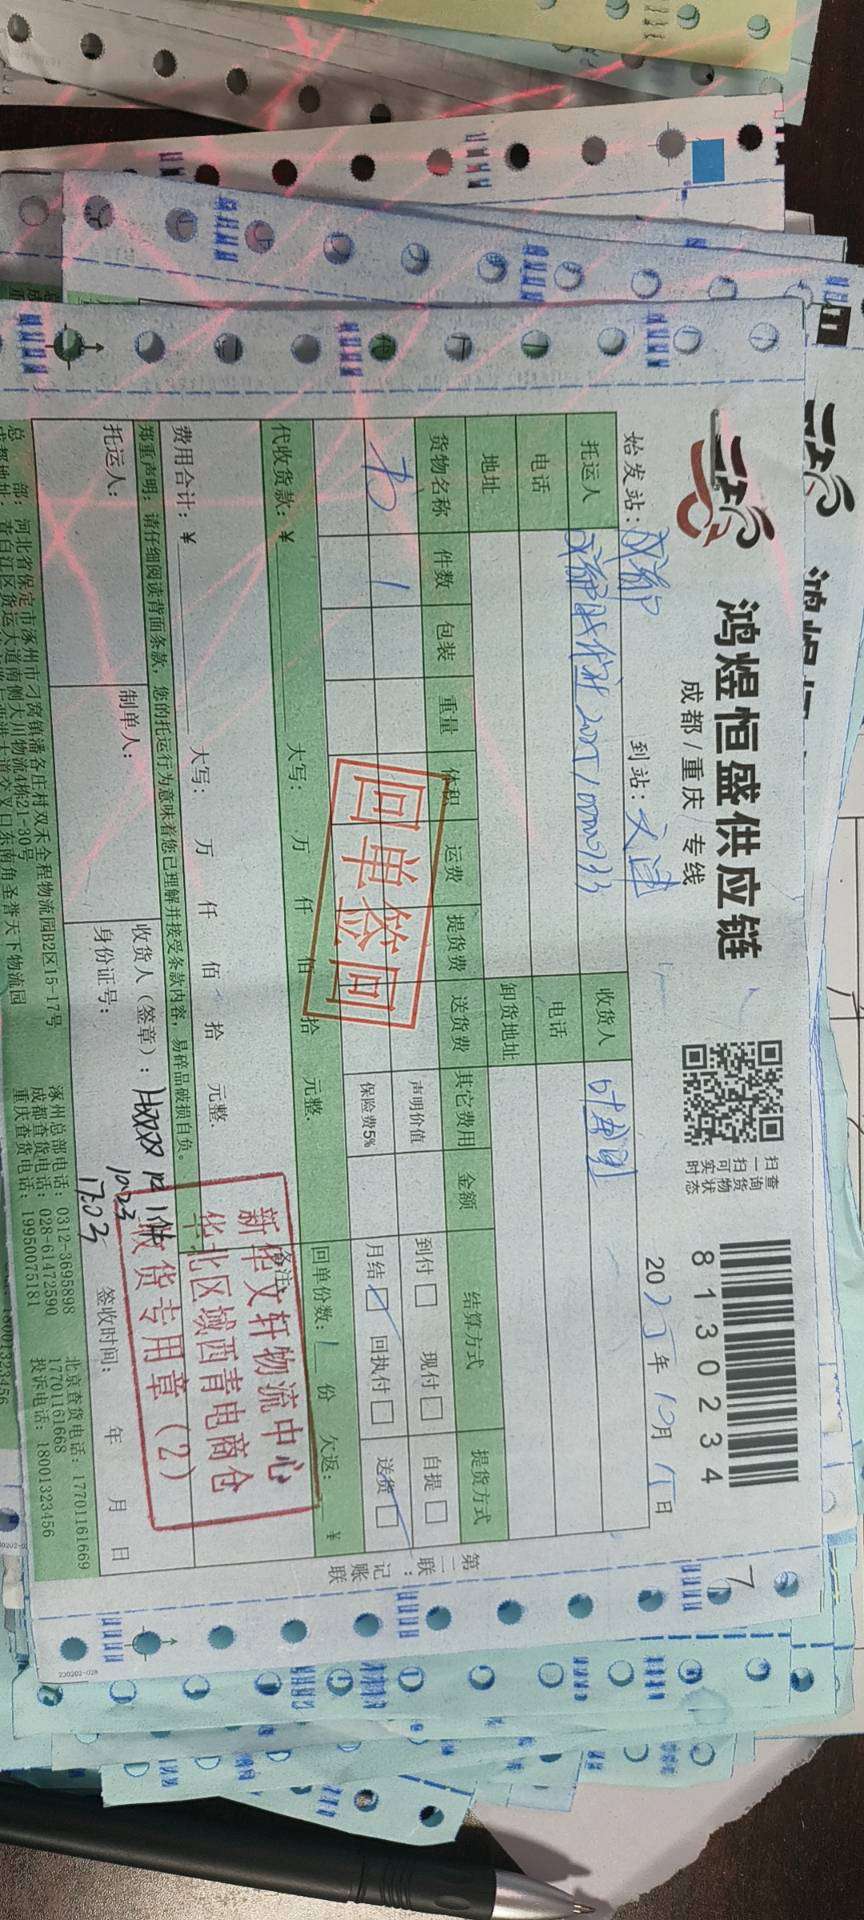 鸿煜恒盛供应链
成都/重庆 专线
扫一扫查询货物实时状态
81300234
始发站：成都 到站：天津
2025年10月 日
托运人 成都时代社 收货人
电话 电话
地址 卸货地址
货物名称 件数 包装 重量 体积 运费 提货费 送货费 其它费用 金额 结算方式 提货方式
书 1 声明价值 到付□ 现付□ 自提□
保险费5% 月结□ 回执付□ 送货□
回单签回
代收货款：￥ 大写： 万 仟 佰 拾 元整. 回单份数：1 份 欠返： ￥
费用合计：￥ 大写： 万 仟 佰 拾 元整. 备注：
郑重声明：请仔细阅读背面条款，您的托运行为意味着您已理解并接受条款内容，易碎品破损自负。
托运人： 制单人： 收货人（签章）： 收 1件
10.23
17:03
身份证号： 签收时间： 年 月 日
新华文轩物流中心
华北区域西青电商仓
收货专用章（2）
总 部：河北省保定市涿州市刁窝镇潘各庄村双禾全程物流园B2区15-17号 涿州总部电话：0312-3695898 北京查货电话：17701161669
成都地址：青白江区货运大道南侧大川物流4栋21-30号 成都查货电话：028-61472590 17701161668
重庆查货电话：19950075181 投诉电话：18001323456
第二联：记账联
230202-028
18001323456